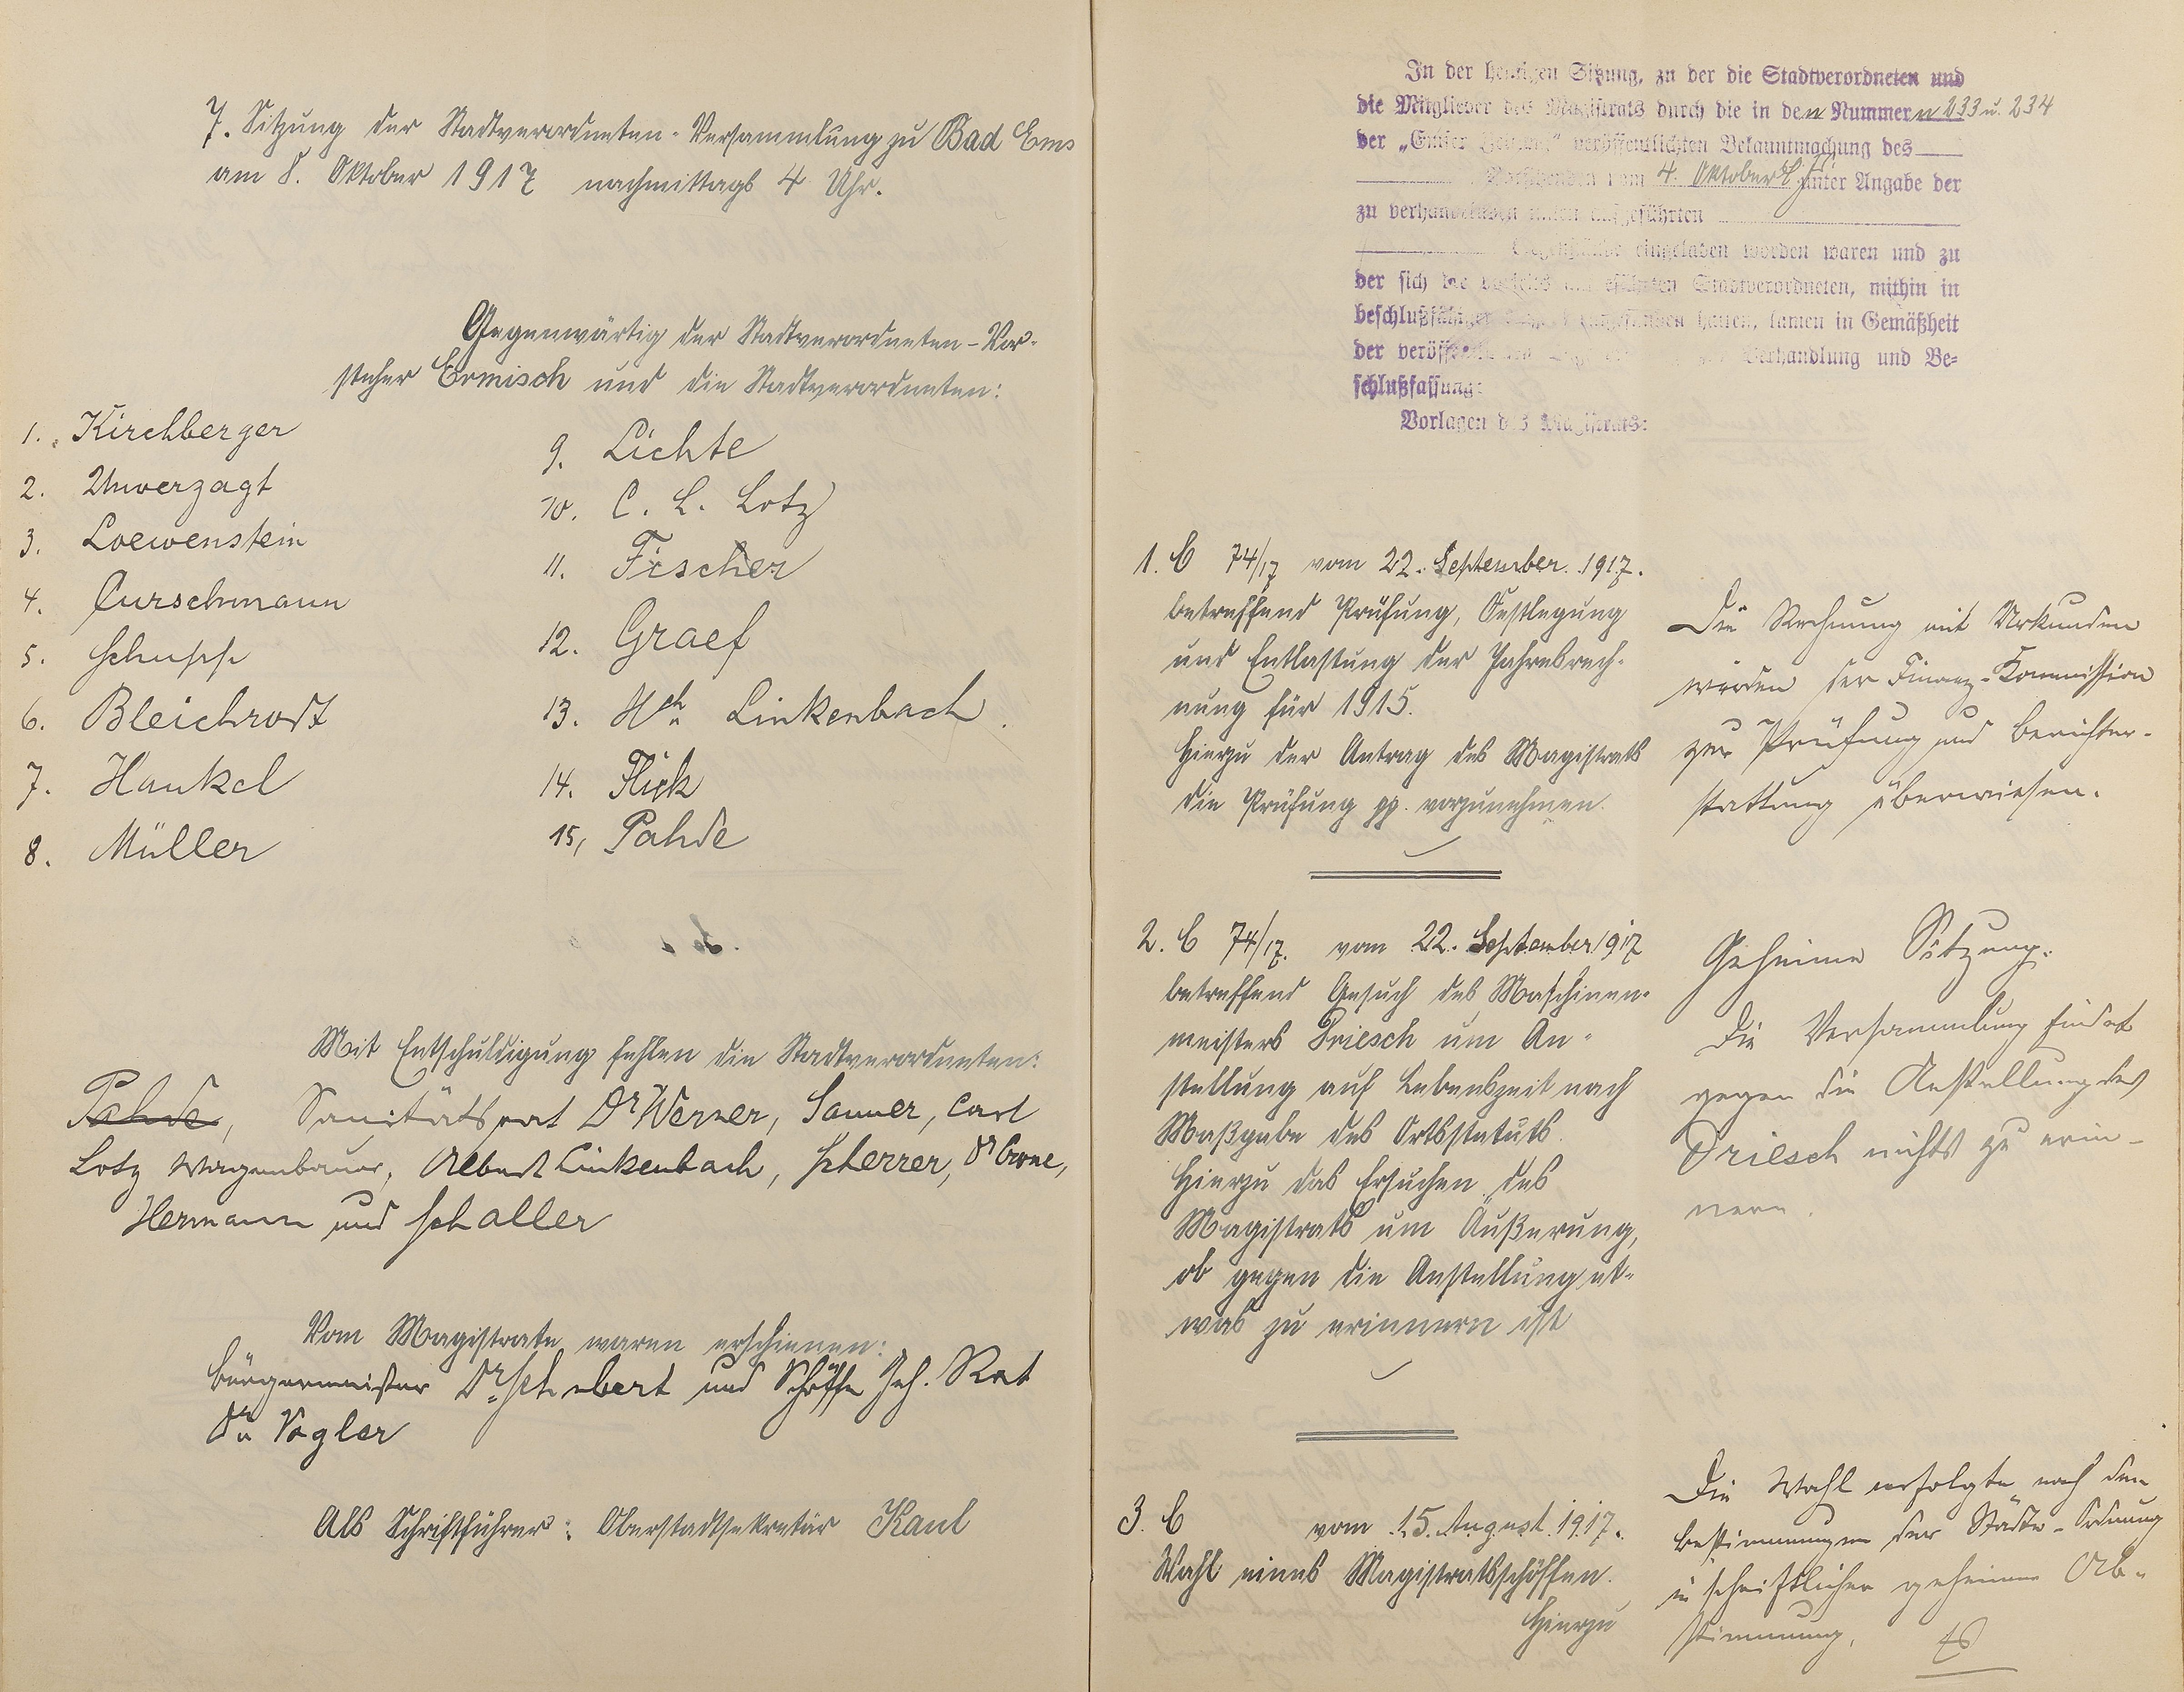 7. Sitzung der Stadtverordneten-Versammlung zu Bad Ems
am 8. Oktober 1917 nachmittags 4 Uhr.
Gegenwärtig der Stadtverordneten-Vor-
steher Ermisch und die Stadtverordneten:
1. Kirchberger
2. Unverzagt
3. Loewenstein
4. Curschmann
5. Schupp
6. Bleichrodt
7. Hankel
8. Müller
9. Lichte
10. C. L. Lotz
11. Fischer
12. Graef
13. Hch Linkenbach.
14. Flick
15, Pahde
Mit Entschuldigung fehlen die Stadtverordneten:
Pahde, Sanitätsrat Dr Werner, Sauer, Carl
Lotz Wagenbauer, Albert Linkenbach, Scherrer, Dr
Hermann und Schaller
Vom Magistrate waren erschienen:
Bürgermeister Dr. Schubert und Schöffe Geh. Rat
Dr. Vogler
Als Schriftführer: Oberstadtsekretär Kaul
In der heutigen Sitzung, zu der die Stadtverordneten und
die Mitglieder des Magistrats durch die in den Nummern 233 u. 234
der „Emser Zeitung" veröffentlichten Bekanntmachung des
Vorsitzenden vom 4. Oktober unter Angabe der
zu verhandelnden unten aufgeführten
Gegenstände eingeladen worden waren und zu
der sich die vorseits aufgeführten Stadtverordneten, mithin in
beschlußfähiger eingefunden hatten, kamen in Gemäßheit
der veröffentlichten Verhandlung und Be-
schlußfassung:
Vorlagen des Magistrats:
1. C 74/17 vom 22. September 1917.
betreffend Prüfung, Festlegung
und Entlastung der Jahresrech-
nung für 1915.
Hierzu der Antrag des Magistrats
die Prüfung pp. vorzunehmen.
Die Rechnung mit Urkunden
werden der Finanz-Kommission
zur Prüfung und Berichter-
stattung überwiesen.
2. C 74/17. vom 22. September 1917
betreffend Gesuch des Maschinen-
meisters Driesch um An-
stellung auf Lebenszeit nach
Maßgabe des Ortsstatuts.
Hierzu das Ersuchen des
Magistrats um Äußerung,
ob gegen die Anstellung et-
was zu erinnern ist
Geheime Sitzung.
Die Versammlung findet
gegen die Anstellung des
Driesch nichts zu erin-
nern.
3. C vom 15. August 1917.
Wahl eines Magistratsschöffen.
Hierzu
Die Wahl erfolgte nach den
Bestimmungen der Städte-Ordnung
in schriftlicher geheimer Ab-
stimmung.
Es